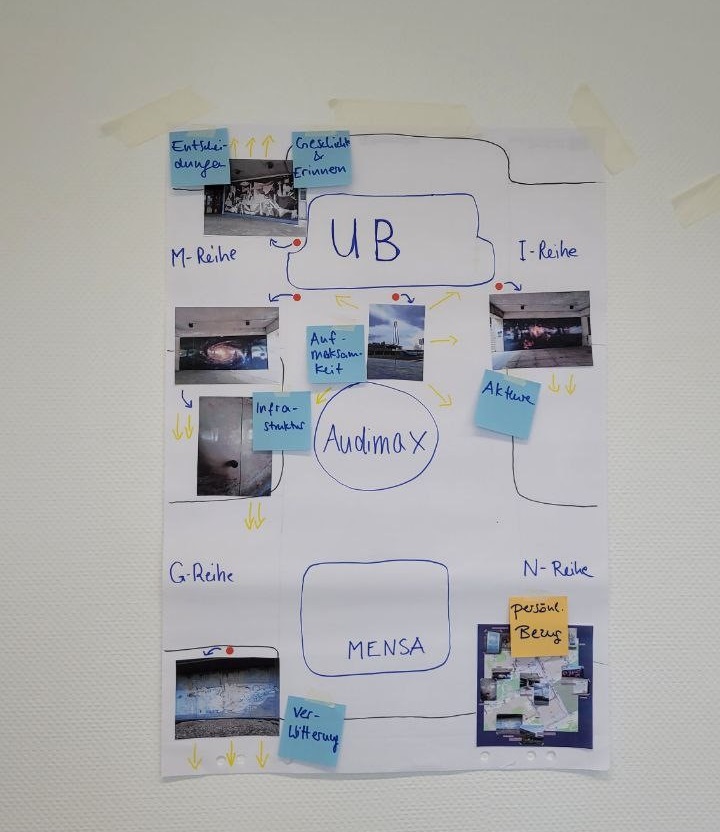 Entschei-
dungen
Geschichte
&
Erinnern
UB
M-Reihe
I-Reihe
Auf-
merksam-
keit
Akteure
Infra-
struktur
Audimax
G-Reihe
N-Reihe
persönl.
Bezug
MENSA
Ver-
witterung